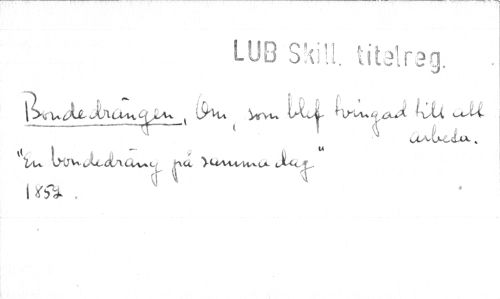 LUB Skill. titelreg.
Bondedrängen, Om, som blef tvingad till att
arbeta.
"En bondedräng på samma dag"
1852.